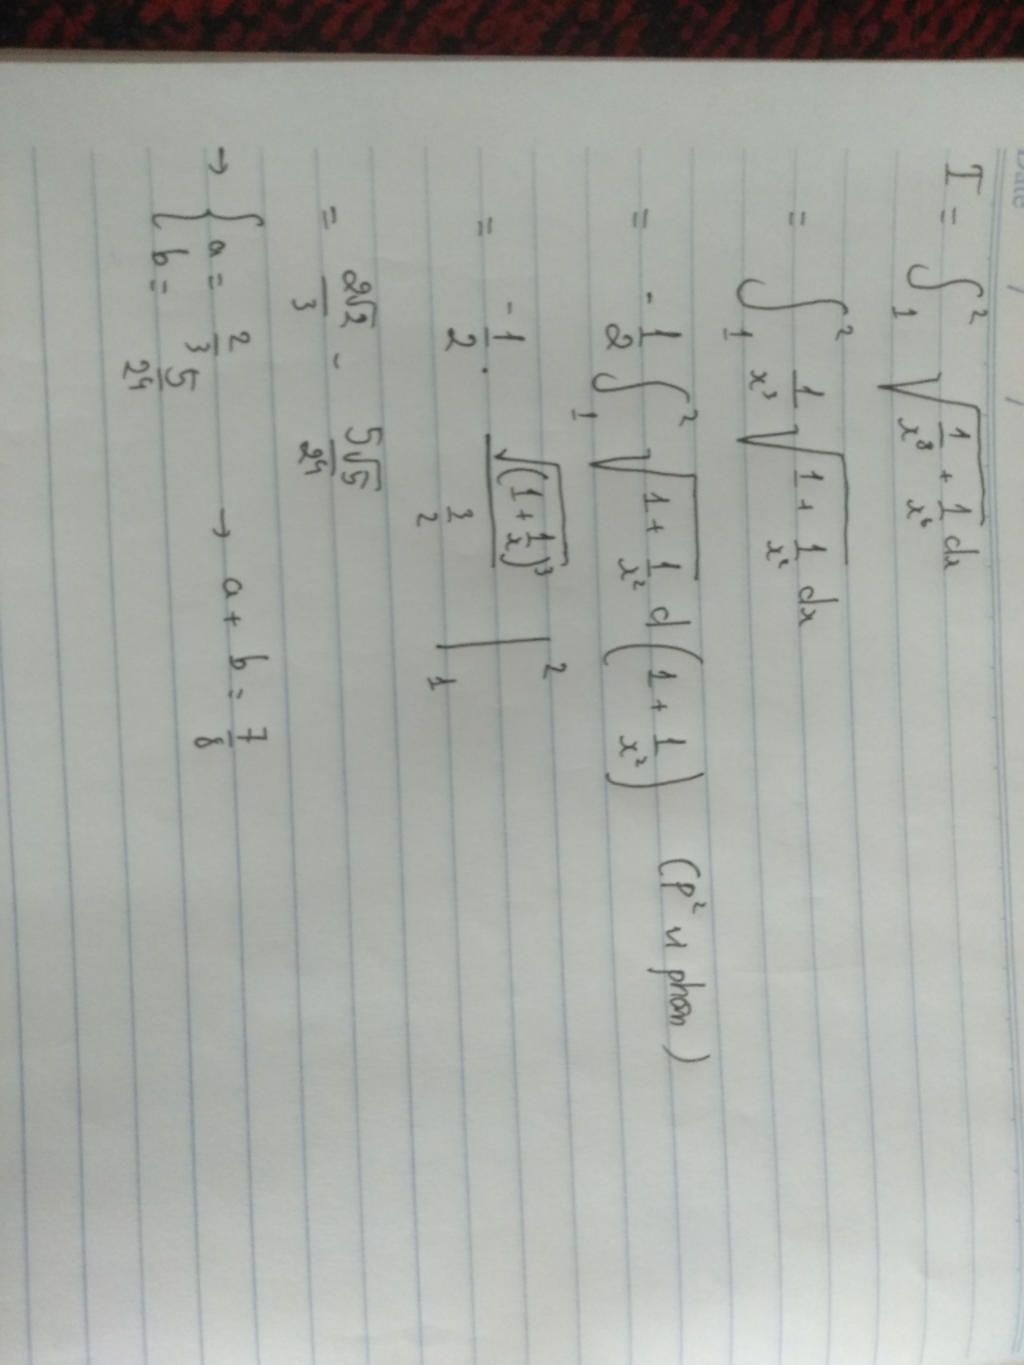 Date / /
I = ∫₁² √(1/x⁸ + 1/x⁶) dx
= ∫₁² 1/x³ √(1 + 1/x²) dx
= -1/2 ∫₁² √(1 + 1/x²) d(1 + 1/x²) (P² vi phân)
= -1/2 . √(1 + 1/x)³ / (3/2) |₁²
= 2√2/3 - 5√5/24
→ { a = 2/3
{ b = 5/24 → a + b = 7/8